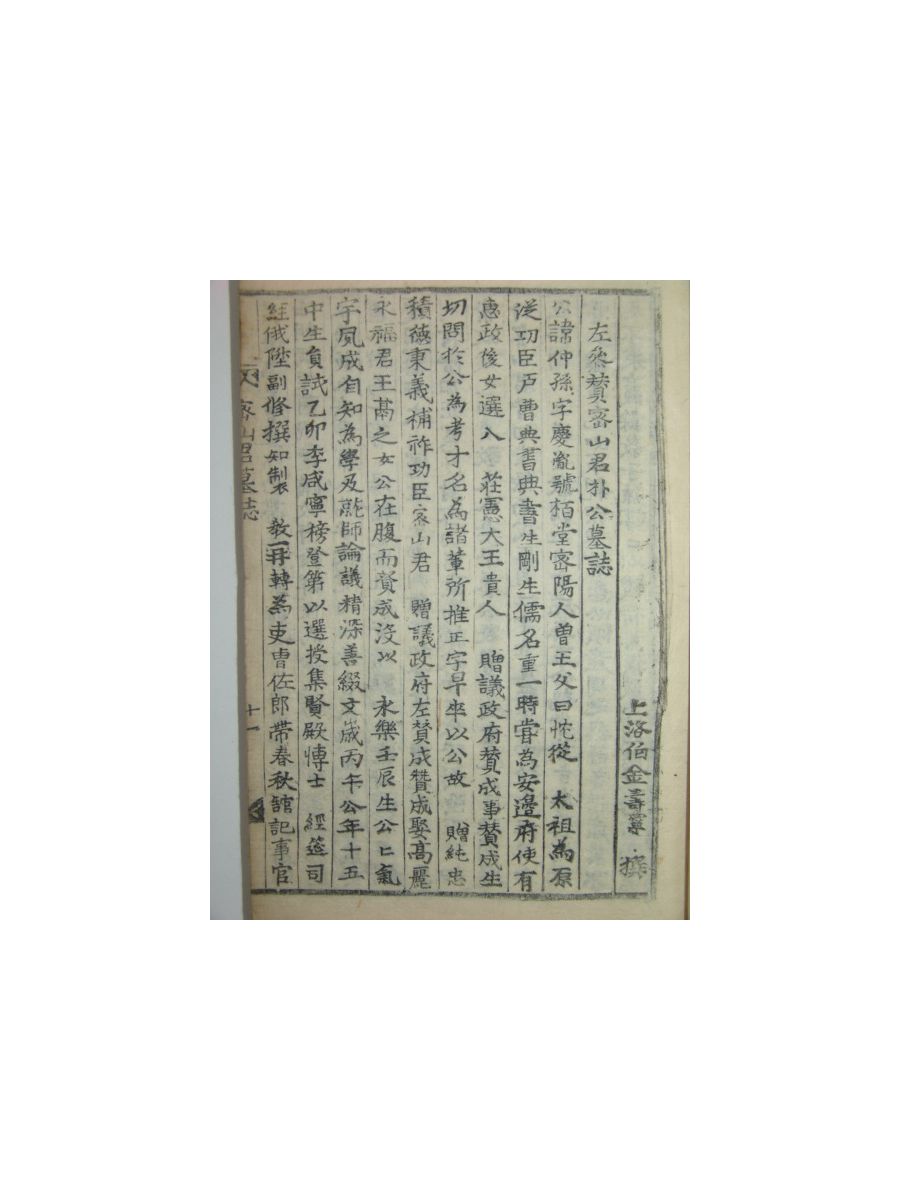 左叅賛密山君朴公墓誌
上洛伯金壽寧 撰
公諱仲孫字慶胤號栢堂密陽人曽王父曰忱從 太祖為原
從功臣戶曹典書典書生剛生儒名重一時甞為安邊府使有
惠政後女選入 莊憲大王貴人 贈議政府賛成事賛成生
切問於公為考才名為諸軰所推正字早卒以公故 贈純忠
積德秉義補祚功臣密山君 贈議政府左賛成賛成娶高麗
永福君王鬲之女公在腹而賛成沒以 永樂壬辰生公公氣
宇夙成自知為學及就師論議精深善綴文歲丙午公年十五
中生負試乙卯李咸寧榜登第以選授集賢殿博士 經筵司
経俄陞副修撰知製 教再轉為吏曹佐郎帶春秋舘記事官
密山君墓誌
十一